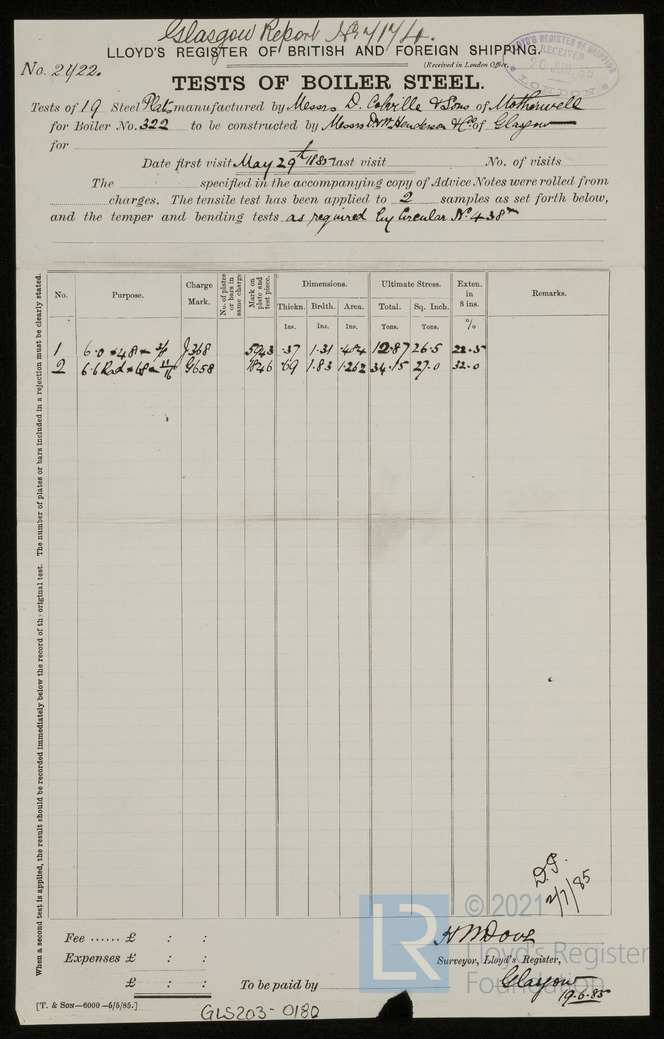 Glasgow Report No 7174.
LLOYD'S REGISTER OF BRITISH AND FOREIGN SHIPPING.
(Received in London Office,
LLOYD'S REGISTER OF SHIPPING
RECEIVED
LONDON
No. 2422.
TESTS OF BOILER STEEL.
Tests of 19 Steel Plates manufactured by Messrs D. Colville & Sons of Motherwell
for Boiler No. 322 to be constructed by Messrs D. & W. Henderson & Co of Glasgow
for
Date first visit May 29th 1885 last visit No. of visits
The specified in the accompanying copy of Advice Notes were rolled from
charges. The tensile test has been applied to 2 samples as set forth below,
and the temper and bending tests as required by Circular No. 438
No. Purpose. Charge Mark. No. of plates or bars in same charge Mark on plate and test piece. Dimensions. Ultimate Stress. Exten. in 8 ins. Remarks.
Thickn. Brdth. Area. Total. Sq. Inch.
Ins. Ins. Ins. Tons. Tons. %
1 6.0 × 48 × 3/8 J368 5943 .37 1.31 .484 12.87 26.5 22.5
2 6.6 Rad × 68 × 11/16 G658 7846 .69 1.83 1.262 34.15 27.0 32.0
When a second test is applied, the result should be recorded immediately below the record of the original test. The number of plates or bars included in a rejection must be clearly stated.
2/7/85
Fee ...... £ : :
Expenses £ : :
£ : :
To be paid by
H M Dove
Surveyor, Lloyd's Register,
Glasgow
19.6.85
[T. & Son—6000—5/5/85.]
GLS203-0180
LR
© 2021
Lloyd's Register
Foundation